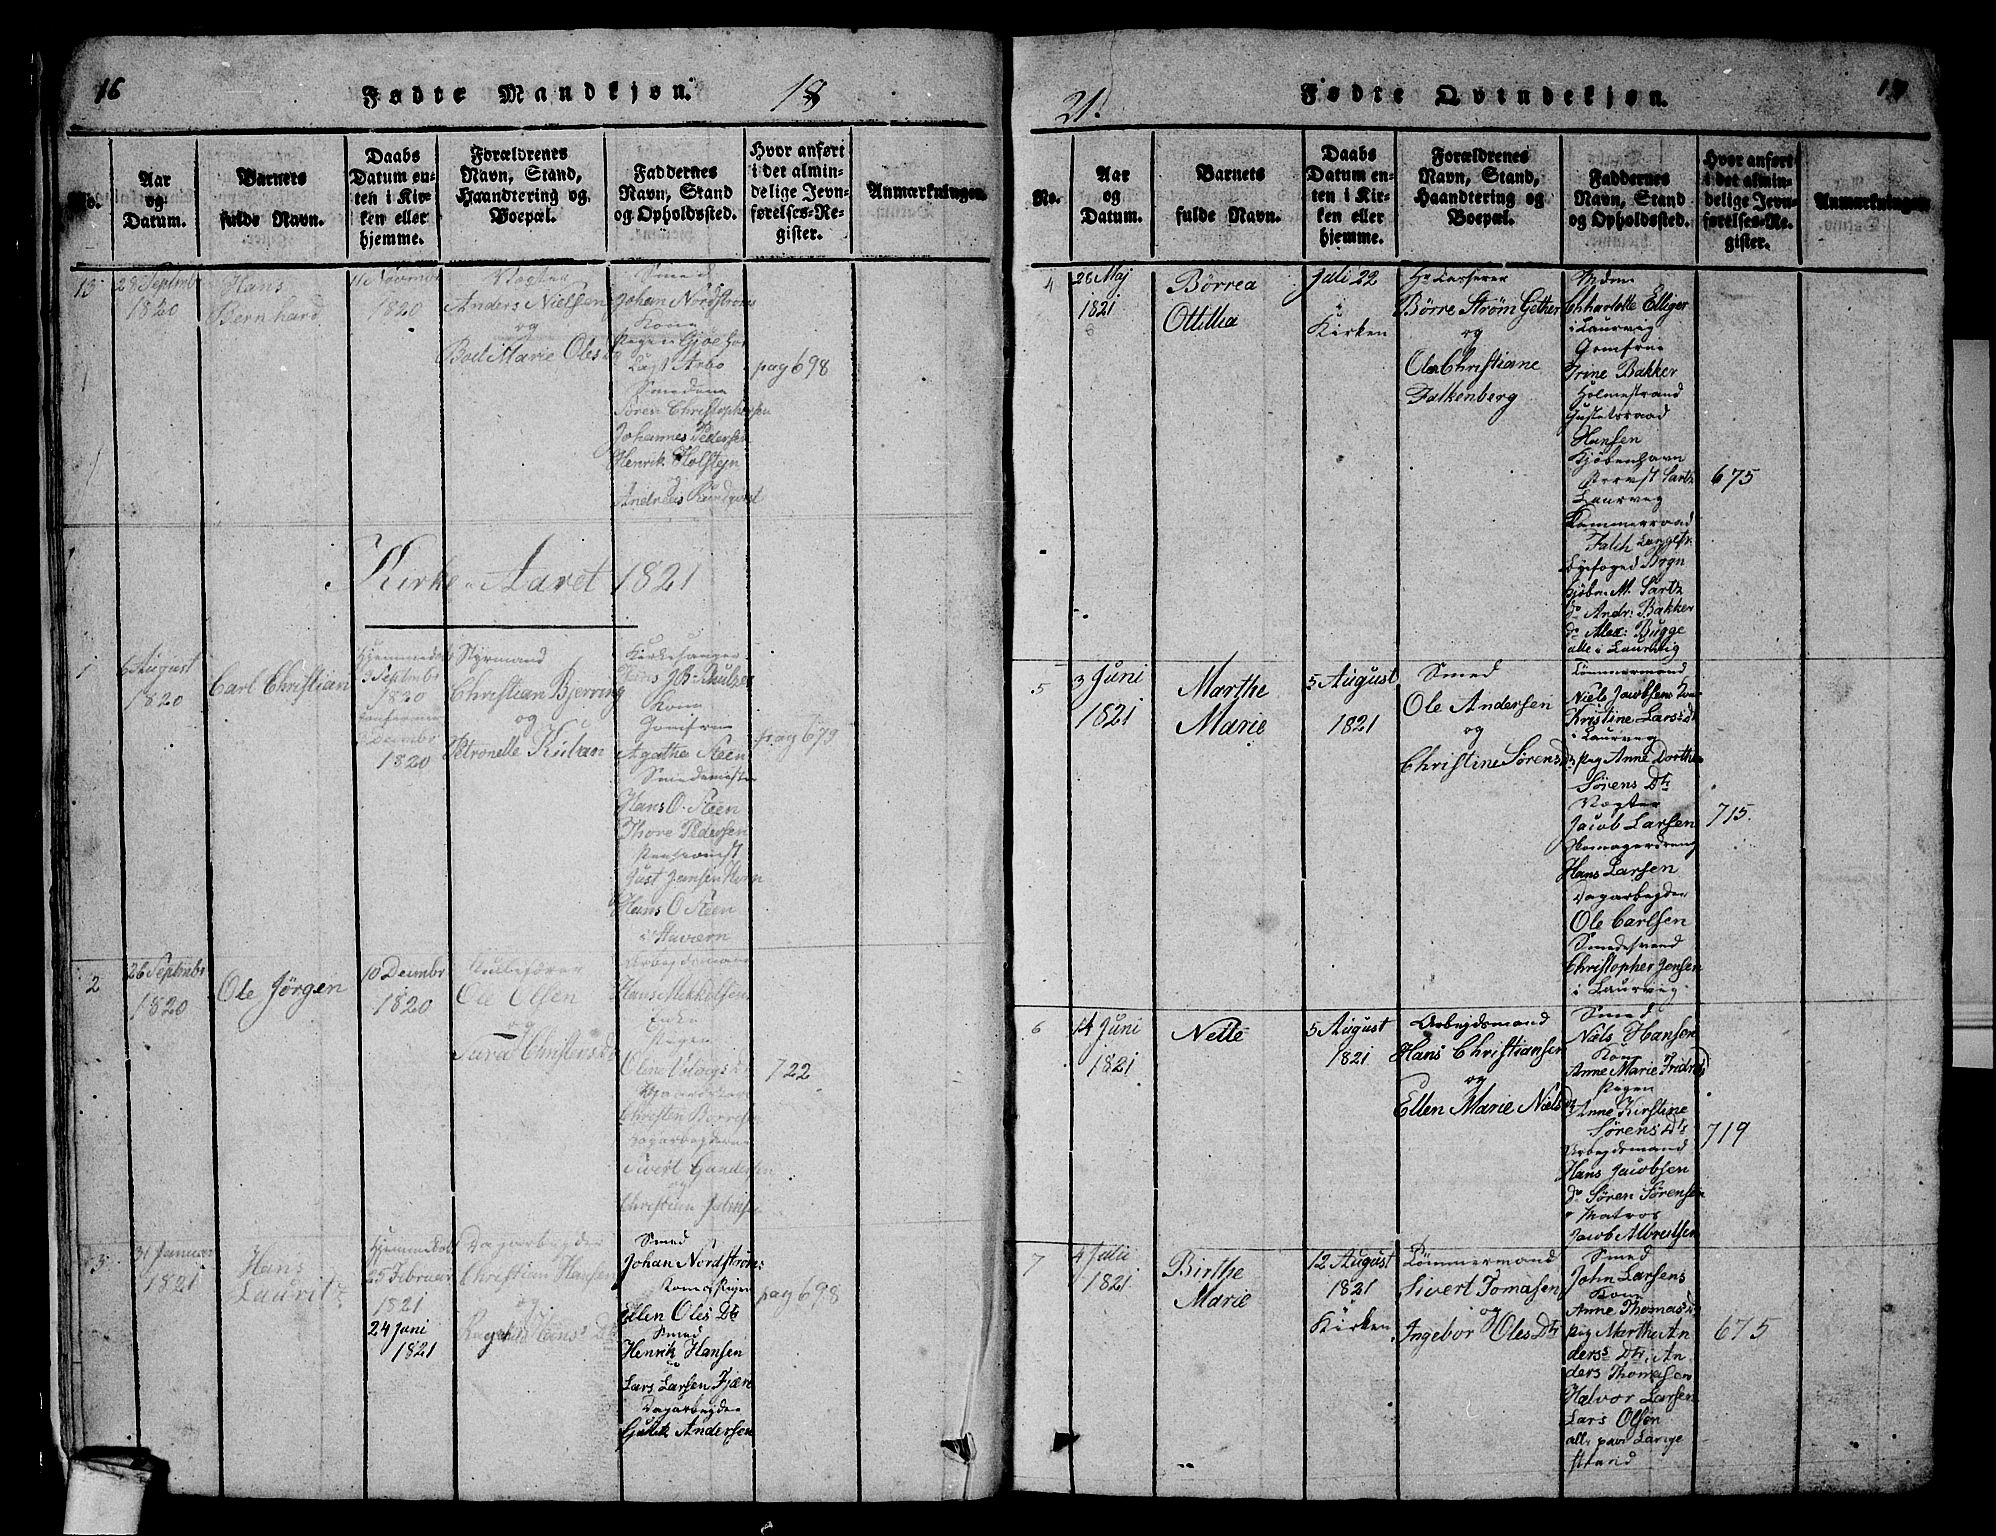 16
Fødte Mandkjøn.
18
No.
Aar og Datum.
Barnets fulde Navn.
Daabs Datum enten i Kirken eller hjemme.
Forældrenes Navn, Stand, Haandtering og Boepæl.
Faddernes Navn, Stand og Opholdssted.
Hvor anført i det almindelige Jevnførelses-Register.
Anmærkninger.
13
28 Septmbr
1820
Hans
Bernhard
11 Novembr
1820
Vogter
Anders Nielsen
og
Bod Marie Oles
Smed
Johan Nordstrøms
Kone
Pigen
Arbo
Smedene
Søren Christophersen
Johannes Pedersen
Henrik Holstejn
Andreas
pag 698
Kirke-Aaret 1821
1
6 August
1820
Carl Christian
Hjemmedøbt
3 Septmbr
1820
Decmbr
1820
Styrmand
Christian Bjerring
og
Petronelle Kuban
Kirkesanger
Kone
Jomfrue
Agathe Steen
Smedemester
Hans O. Steen
Thore Pedersen
Just Jensen Horn
Hans O Steen
i Staværn
pag 679
2
26 Septmbr
1820
Ole Jørgen
10 Decmbr
1820
Ole Olsen
og
Arbejdsmand
Hans Mikkelsens
Enke
Pigen
Christen
Dagarbejderne
Sivert Gundersen
og
Christian
722
3
31 Januar
1821
Hans
Lauritz
Hjemmedøbt
25 Februar
1821
24 Juni
1821
Dagarbejder
Christian Hansen
og
Smed
Johan Nordstrøms
Kone Pigen
Ellen Oles Dtr
Smed
Henrik Hansen
Lars Larsen Fjære
Dagarbejder
Andersen
pag 698
21.
Fødte Qvindekjøn.
17
No.
Aar og Datum.
Barnets fulde Navn.
Daabs Datum enten i Kirken eller hjemme.
Forældrenes Navn, Stand, Haandtering og Boepæl.
Faddernes Navn, Stand og Opholdssted.
Hvor anført i det almindelige Jevnførelses-Register.
Anmærkninger.
4
26 Maj
1821
Børrea
Ottillia
Juli 22
i
Kirken
Børre Strøm Gether
og
Ole Christiane
Falkenberg
Charlotte Elliger
i Laurvig
Jomfrue
Trine Bakker
Holmestrand
Justitsraad
Hansen
Kjøbenhavn
Provst Sartz
Laurvig
Kammerraad
Falch
Byefoged
Kjøbm. M. Sartz
do Andr: Bakker
do Alex: Bugge
alle i Laurvig
675
5
3 Juni
1821
Marthe
Marie
5 August
1821
Smed
Ole Andersen
og
Christine Sørens Dtr
Tømmermand
Niels Jacobsens Kone
Kristine Lars dtr
i Laurvig
Pig Anne Dorthe
Sørens Dtr
Vogter
Jacob Larsen
Skomagerdreng
Hans Larsen
Dagarbejder
Ole Carlsen
Smedesvend
Christopher Jensen
i Laurvig
715.
6
14 Juni
1821
Nette
5 August
1821
Arbejdsmand
Hans Christiansen
og
Ellen Marie Niels Dtr
Smed
Niels Hansen
Kone
Anne Marie Fridrs D
Pigen
Anne Kirstine
Sørens Dtr
Arbejdsmand
Hans Jacobsen
do Søren Sørensen
Matros
Jacob Albretsen
719
7
4 Juli
1821
Birthe
Marie
12 August
1821
Kirken
Tømmermand
Sivert Tomasen
og
Ingebor Oles Dtr
Smed
John Larsens
Kone
Anne Thomas D
Pig Marthe An
ders Dtr, An
ders Thomasen
Halvor Larsen
Lars Olsen
alle paa Lange
strand
675